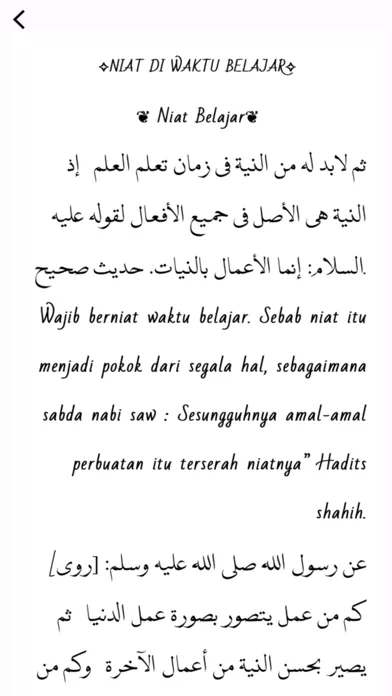 ⟡NIAT DI WAKTU BELAJAR⟡
❦ Niat Belajar❦
ثم لابد له من النية فى زمان تعلم العلم إذ
النية هى الأصل فى جميع الأفعال لقوله عليه
السلام: إنما الأعمال بالنيات. حديث صحيح.
Wajib berniat waktu belajar. Sebab niat itu
menjadi pokok dari segala hal, sebagaimana
sabda nabi saw : Sesungguhnya amal-amal
perbuatan itu terserah niatnya” Hadits
shahih.
عن رسول الله صلى الله عليه وسلم: [روى]
كم من عمل يتصور بصورة عمل الدنيا ثم
يصير بحسن النية من أعمال الآخرة وكم من